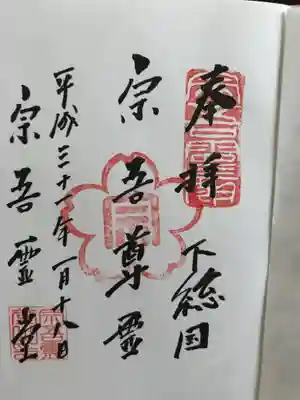 奉拝
下總国
宗吾尊霊
平成三十一年一月十八日
宗吾霊堂